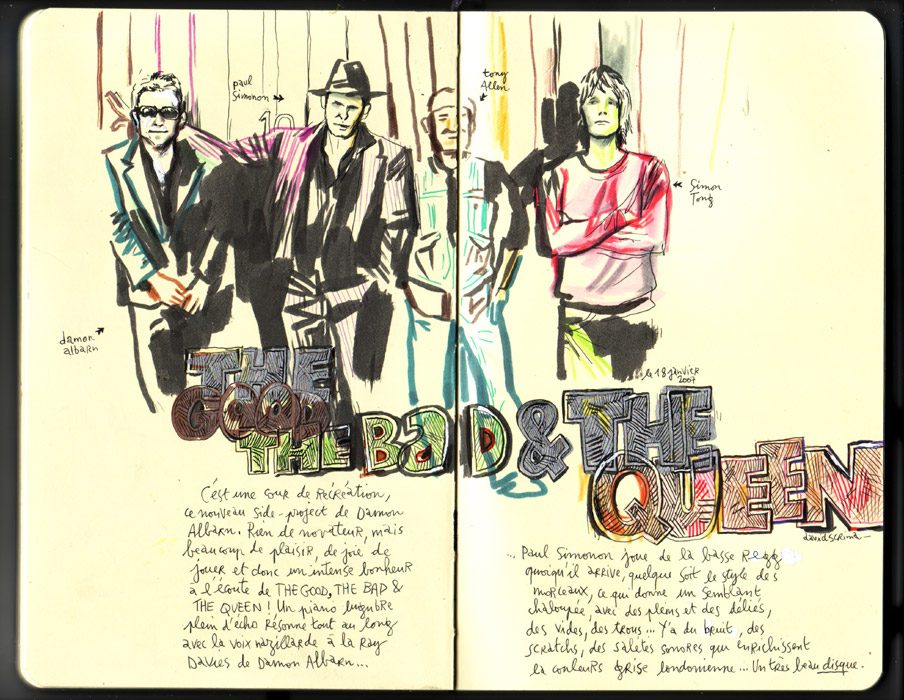 paul
Simonon
tony
Allen
Simon
Tong
damon
albarn
le 18 janvier
2007
THE
GOOD
THE BaD & THE
QUEEN
C'est une cour de Récréation,
ce nouveau side-project de Damon
Albarn. Rien de novateur, mais
beaucoup de plaisir, de joie de
jouer et donc un intense bonheur
à l'écoute de THE GOOD, THE BAD &
THE QUEEN ! Un piano lugubre
plein d'écho résonne tout au long
avec la voix nazillarde à la Ray
Davies de Damon Albarn...
... Paul Simonon joue de la basse
quoiqu'il arrive, quelque soit le style des
morceaux, ce qui donne un semblant
chaloupée avec des pleins et des déliés,
des vides, des trous... Y'a du bruit, des
scratchs, des saletés sonores qui enrichissent
la couleurs grise londonienne... Un tres beau disque.